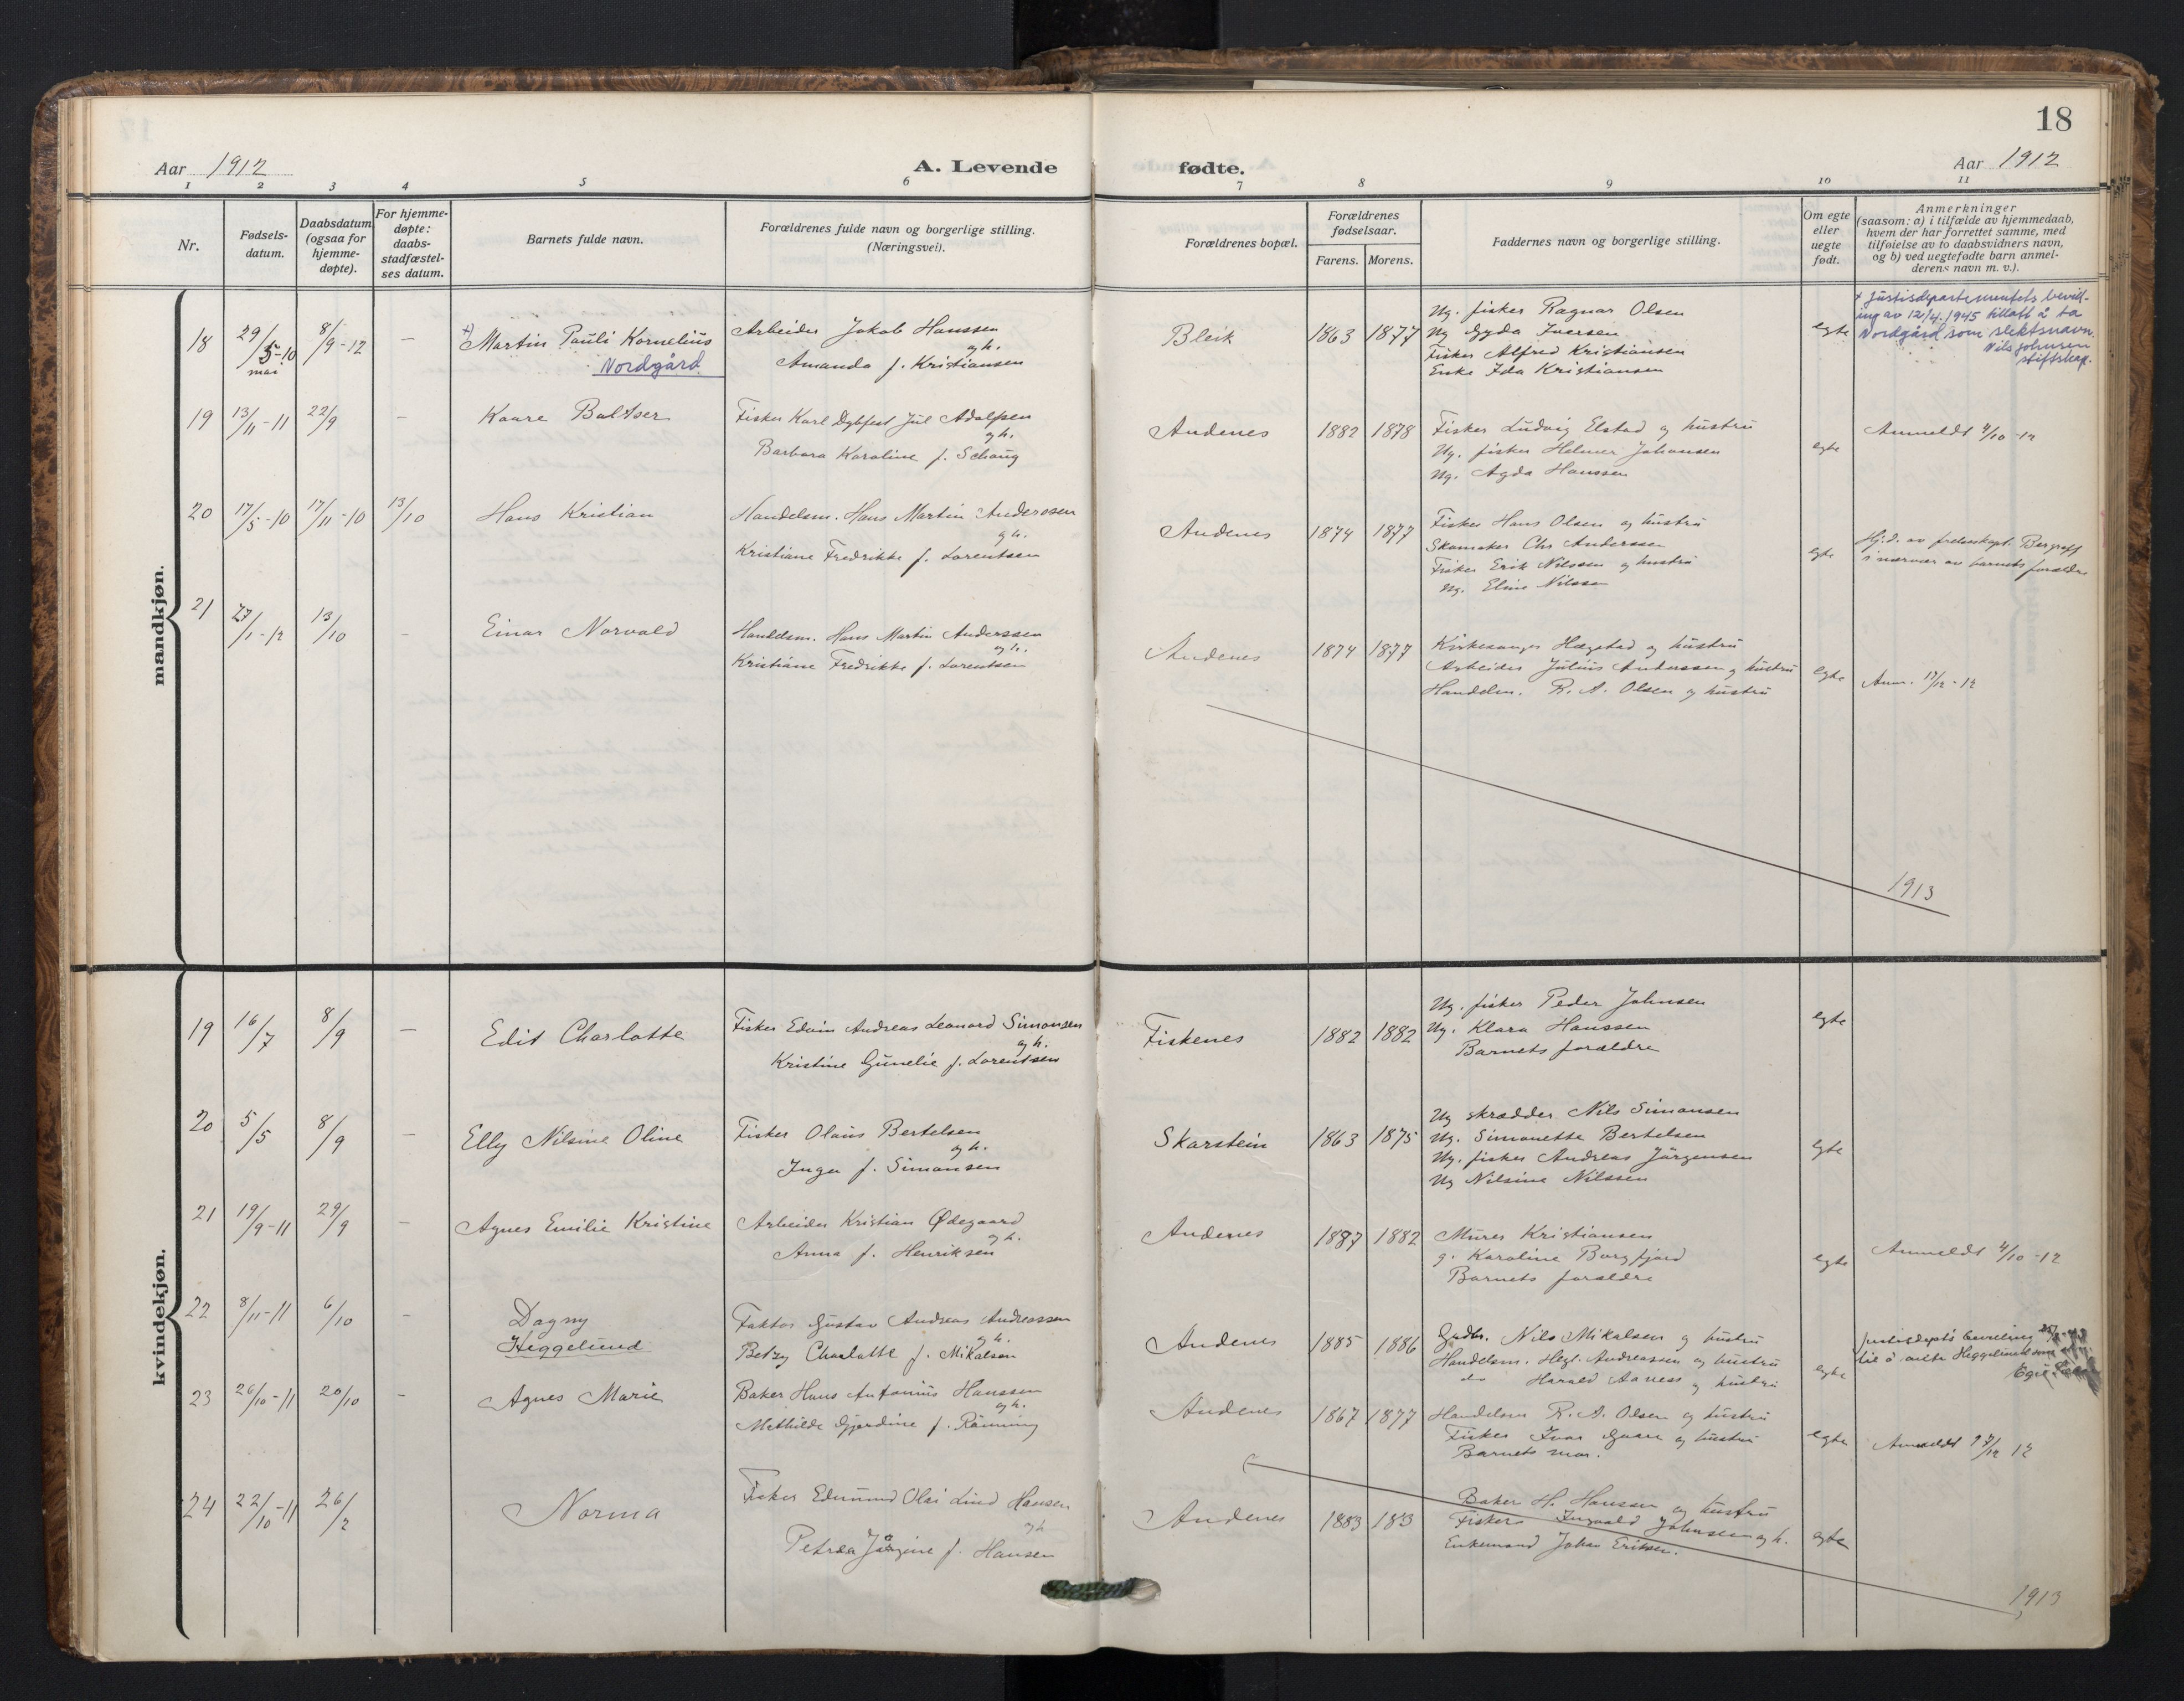 18
Aar 1912
A. Levende
fødte.
Aar 1912
1 2 3 4 5 6 7 8 9 10 11
Nr.
Fødsels-
datum.
Daabsdatum
(ogsaa for
hjemme-
døpte).
For hjemme-
døpte:
daabs-
stadfæstel-
ses datum.
Barnets fulde navn.
Forældrenes fulde navn og borgerlige stilling.
(Næringsvei).
Forældrenes bopæl.
Forældrenes
fødselsaar.
Farens. Morens.
Faddernes navn og borgerlige stilling.
Om egte
eller
uegte
født.
Anmerkninger
(saasom: a) i tilfælde av hjemmedaab,
hvem der har forrettet samme, med
tilføielse av to daabsvidners navn,
og b) ved uegtefødte barn anmel-
derens navn m. v.).
mandkjøn.
18 29/5-10 8/9-12 — +) Martin Pauli Kornelius
mai
Nordgård
Arbeider Jakob Hanssen
og h.
Amanda f. Kristiansen
Bleik 1863 1877
Ug. fisker Ragnar Olsen
Ug Gyda Iversen
Fisker Alfred Kristiansen
Enke Ida Kristiansen
egte
+ Justisdepartementets bevill-
ing av 12/4.1945 tillatt å ta
Nordgård som slektsnavn.
Nils Johnsen
stiftskap.
19 13/11-11 22/9 — Kaare Baltser
Fisker Karl Dybfest Jul Adolfsen
og h.
Barbara Karoline f. Schaug
Andenes 1882 1878
Fisker Ludvig Elstad og hustru
Ug. fisker Helmer Johansen
Ug. Agda Hanssen
egte
Anmeldt 4/10-12
20 17/5-10 17/11-10 13/10 Hans Kristian
Handelsm. Hans Martin Anderssen
og h.
Kristiane Fredrikke f. Lorentsen
Andenes 1874 1877
Fisker Hans Olsen og hustru
Skomaker Chr Anderssen
Fisker Erik Nilssen og hustru
Ug. Eline Nilssen
egte
Hj.d. av frelseskapt.
i nærvær av barnets forældre
21 27/1-12 13/10 — Einar Norvald
Handelsm. Hans Martin Anderssen
og h.
Kristiane Fredrikke f. Lorentsen
Andenes 1874 1877
Kirkesanger Hægstad og hustru
Arbeider Julius Anderssen og hustru
Handelsm. R. A. Olsen og hustru
egte
Anm. 17/12-12
1913
kvindekjøn.
19 16/7 8/9 — Edit Charlotte
Fisker Edvin Andreas Leonard Simonsen
og h.
Kristine Gunelie f. Lorentsen
Fiskenes 1882 1882
Ug. fisker Peder Johnsen
Ug. Klara Hanssen
Barnets forældre
egte
20 5/5 8/9 — Elly Nilsine Oline
Fisker Olaus Bertelsen
og h.
Inga f. Simonsen
Skarstein 1863 1875
Ug skrædder Nils Simonsen
Ug. Simonette Bertelsen
Ug. fisker Andreas Jørgensen
Ug Nilsine Nilssen
egte
21 19/9-11 29/9 — Agnes Emilie Kristine
Arbeider Kristian Ødegaard
og h.
Anna f. Henriksen
Andenes 1887 1882
Murer Kristiansen
g. Karoline Borgfjord
Barnets forældre
egte
Anmeldt 4/10-12
22 8/11-11 6/10 — Dagny
Heggelund
Faktor Gustav Andreas Andreassen
og h.
Betzy Charlotte f. Mikalsen
Andenes 1885 1886
Gudbr. Nils Mikalsen og hustru
Handelsm. Hegl. Andreassen og hustru
do Harald Aaness og hustru
egte
23 26/10-11 20/10 — Agnes Marie
Baker Hans Antonius Hanssen
og h.
Mathilde Gjerdine f. Rønning
Andenes 1867 1877
Handelsm R. A. Olsen og hustru
Fisker Ivar Gaare og hustru
Barnets mor.
egte
Anmeldt 17/12 12
24 22/10-11 26/2 Norma
Fisker Edmund Olai Lind Hansen
og h
Petrea Jørgine f. Hansen
Andenes 1883 183
Baker H. Hanssen og hustru
Fisker Ingvald Johnsen og h.
Enkemand Johan Eriksen.
egte
1913